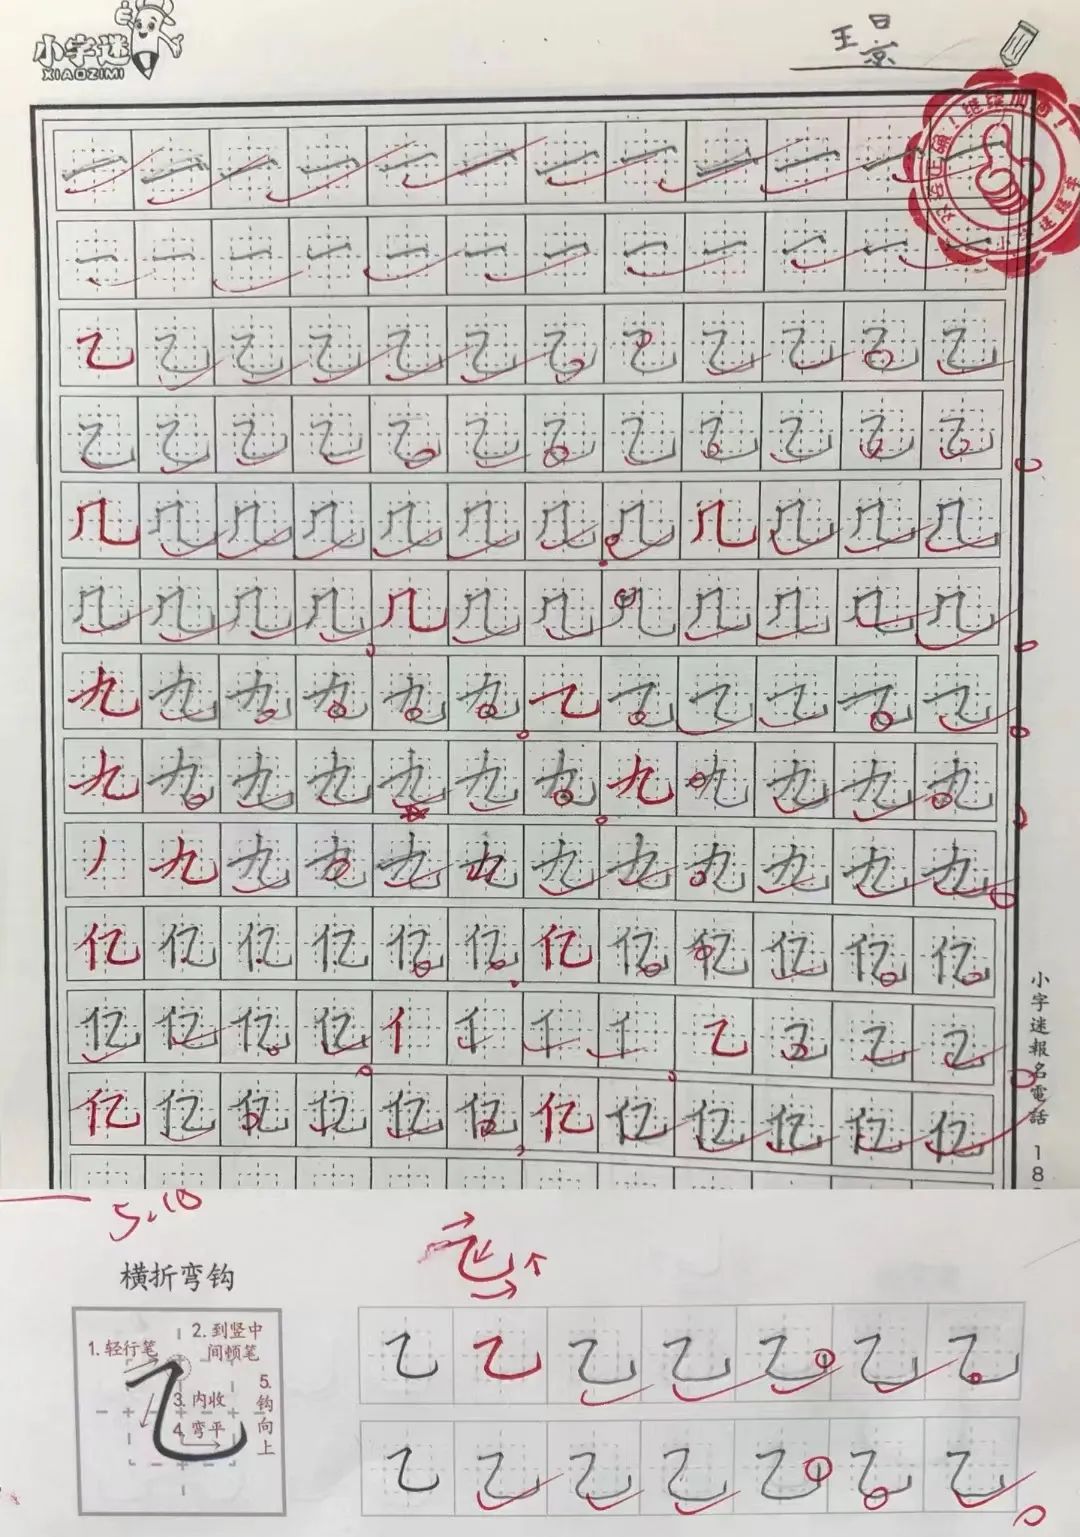 小字迷
XIAOZIMI
王景
一 一 一 一 一 一 一 一 一 一 一 一
一 一 一 一 一 一 一 一 一 一 一 一
乙 乙 乙 乙 乙 乙 乙 乙 乙 乙 乙 乙
乙 乙 乙 乙 乙 乙 乙 乙 乙 乙 乙 乙
几 几 几 几 几 几 几 几 几 几 几 几
几 几 几 几 几 几 几 几 几 几 几 几
九 九 九 九 九 九 乙 乙 乙 乙 乙 乙
九 九 九 九 九 九 九 九 九 九 九 九
丿 九 九 九 九 九 九 九 九 九 九 九
亿 亿 亿 亿 亿 亿 亿 亿 亿 亿 亿 亿
亿 亿 亿 亿 亻 亻 亻 亻 乙 乙 乙 乙
亿 亿 亿 亿 亿 亿 亿 亿 亿 亿 亿 亿
小字迷報名電話 18
5.10
横折弯钩
1.轻行笔
2.到竖中
间顿笔
3.内收
4.弯平
5.钩向上
乙 乙 乙 乙 乙 乙 乙
乙 乙 乙 乙 乙 乙 乙